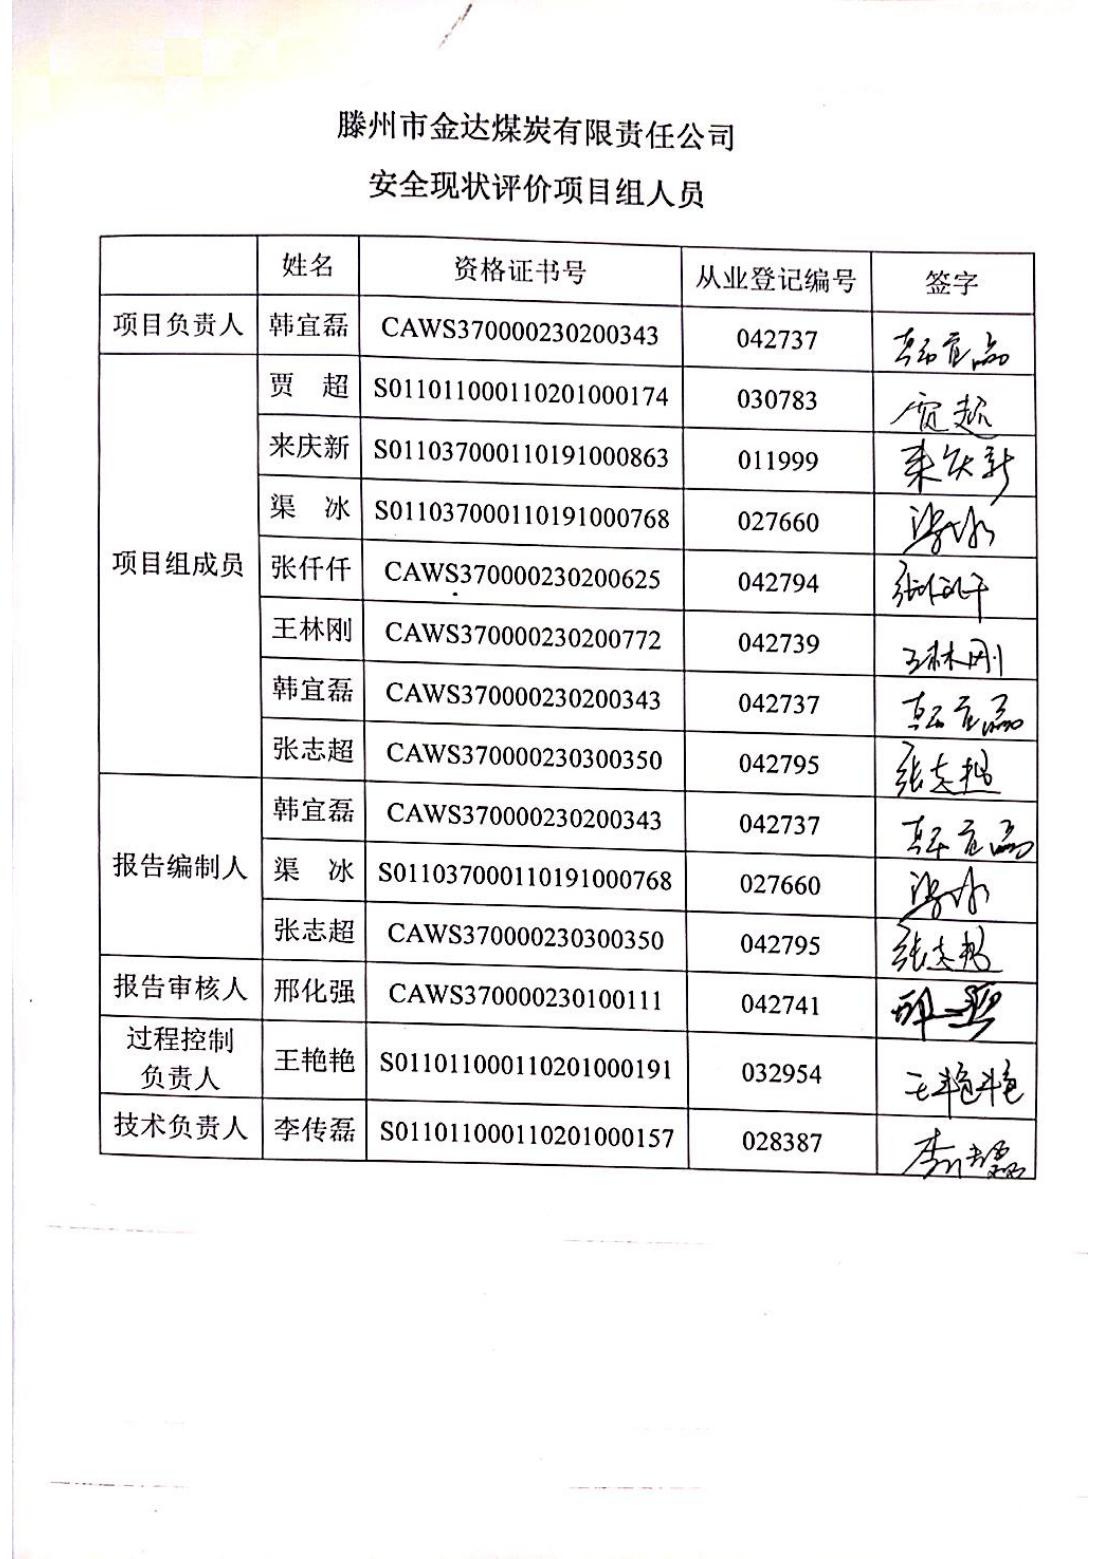 滕州市金达煤炭有限责任公司
安全现状评价项目组人员
姓名 资格证书号 从业登记编号 签字
项目负责人 韩宜磊 CAWS370000230200343 042737 韩宜磊
项目组成员
贾 超 S011011000110201000174 030783 贾超
来庆新 S011037000110191000863 011999 来庆新
渠 冰 S011037000110191000768 027660 渠冰
张仟仟 CAWS370000230200625 042794 张仟仟
王林刚 CAWS370000230200772 042739 王林刚
韩宜磊 CAWS370000230200343 042737 韩宜磊
张志超 CAWS370000230300350 042795 张志超
报告编制人
韩宜磊 CAWS370000230200343 042737 韩宜磊
渠 冰 S011037000110191000768 027660 渠冰
张志超 CAWS370000230300350 042795 张志超
报告审核人 邢化强 CAWS370000230100111 042741
过程控制
负责人
王艳艳 S011011000110201000191 032954 王艳艳
技术负责人 李传磊 S011011000110201000157 028387 李传磊